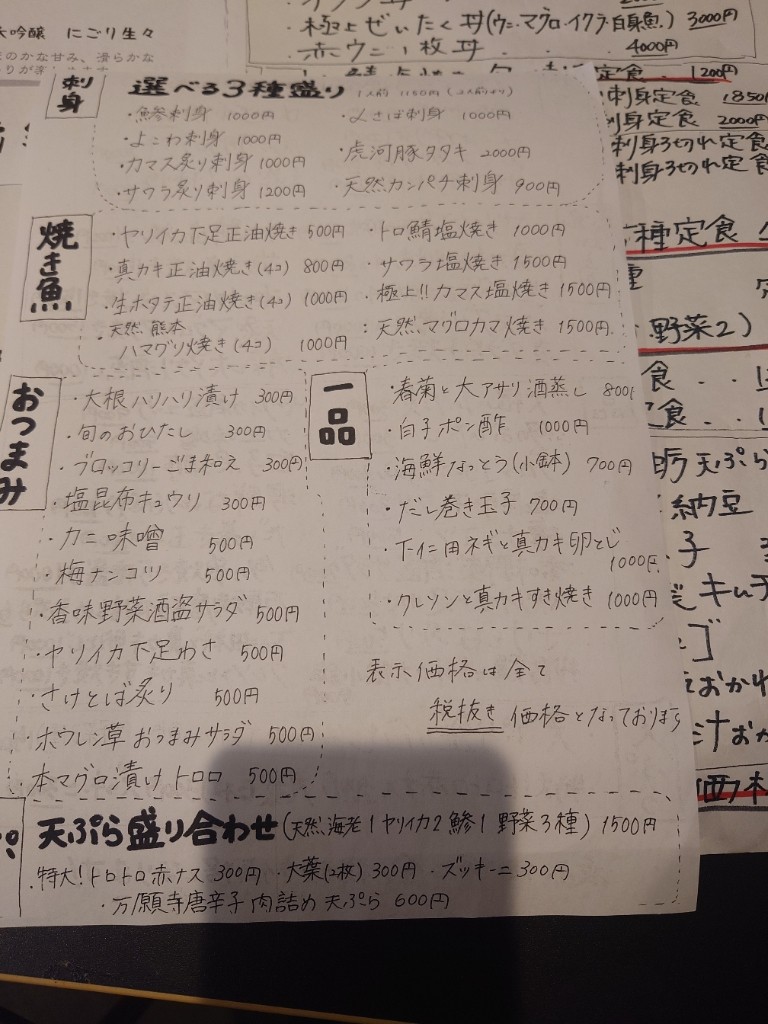 大吟醸 にごり生々
極上ぜいたく丼(ウニ・マグロ・イクラ・白身魚) 3000円
・赤ウニ1枚丼 4000円
定食 1200円
刺身定食 1850円
刺身定食 2000円
刺身3切れ定食
刺身3切れ定食
種定食
野菜2)
天ぷら
納豆
刺身
選べる3種盛り 1人前 1150円(2人前より)
・鯵刺身 1000円
・〆さば刺身 1000円
・よこわ刺身 1000円
・虎河豚タタキ 2000円
・カマス炙り刺身 1000円
・サワラ炙り刺身 1200円
・天然カンパチ刺身 900円
焼き魚
・ヤリイカ下足正油焼き 500円
・トロ鯖塩焼き 1000円
・真カキ正油焼き(4コ) 800円
・サワラ塩焼き 1500円
・生ホタテ正油焼き(4コ) 1000円
・極上!! カマス塩焼き 1500円
・天然 熊本
ハマグリ焼き(4コ) 1000円
・天然マグロカマ焼き 1500円
おつまみ
・大根ハリハリ漬け 300円
・旬のおひたし 300円
・ブロッコリーごま和え 300円
・塩昆布キュウリ 300円
・カニ味噌 500円
・梅ナンコツ 500円
・香味野菜酒盗サラダ 500円
・ヤリイカ下足わさ 500円
・さけとば炙り 500円
・ホウレン草おつまみサラダ 500円
・本マグロ漬けトロロ 500円
一品
・春菊と大アサリ酒蒸し 800円
・白子ポン酢 1000円
・海鮮なっとう(小鉢) 700円
・だし巻き玉子 700円
・下仁田ネギと真カキ卵とじ
1000円
・クレソンと真カキすき焼き 1000円
表示価格は全て
税抜き価格となっております
天ぷら盛り合わせ(天然海老1 ヤリイカ2 鯵1 野菜3種) 1500円
・特大!トロトロ赤ナス 300円 ・大葉(2枚) 300円 ・ズッキーニ 300円
・万願寺唐辛子 肉詰め 天ぷら 600円